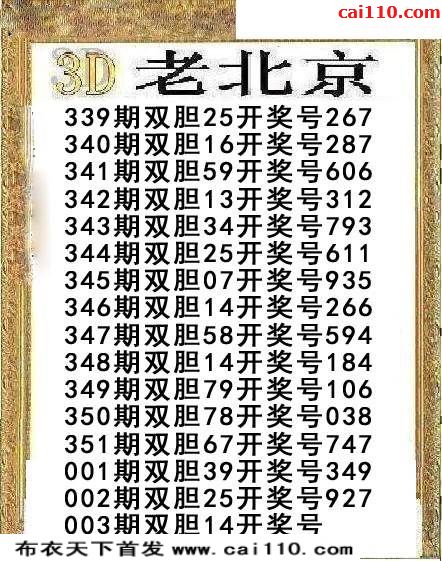 cai110.com
3D 老北京
339期双胆25开奖号267
340期双胆16开奖号287
341期双胆59开奖号606
342期双胆13开奖号312
343期双胆34开奖号793
344期双胆25开奖号611
345期双胆07开奖号935
346期双胆14开奖号266
347期双胆58开奖号594
348期双胆14开奖号184
349期双胆79开奖号106
350期双胆78开奖号038
351期双胆67开奖号747
001期双胆39开奖号349
002期双胆25开奖号927
003期双胆14开奖号
布衣天下首发 www.cai110.com